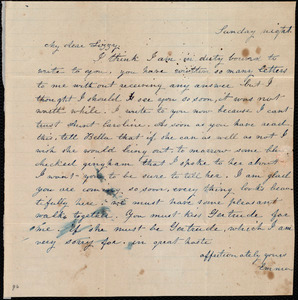 Sunday night
My dear Lizzy,
I think I am in duty bound to
write to you, you have written so many letters
to me with out receiving any answer but I
thought I should see you so soon, it was not
worth while. I write to you now because I cant
trust Aunt Caroline. As soon as you have read
this, tell Bella that if she can as well as not I
wish she would bring out to morrow some blue
checked gingham that I spoke to her about
I want you to be sure to tell her. I am glad
you are coming so soon, every thing looks beau
tifully here; we must have some pleasant
walks together. You must kiss Gertrude for
me. If she must be Gertrude, which I am
very sorry for. in great haste
affectionately yours